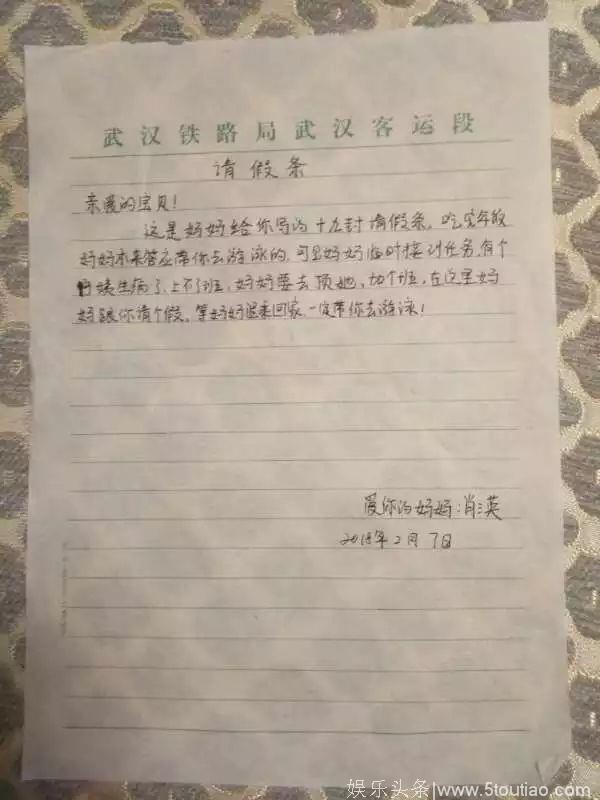 武汉铁路局武汉客运段
请假条
亲爱的宝贝！
这是妈妈给你写的十九封请假条，吃完年饭
妈妈本来答应带你去游泳的，可是妈妈临时接到任务，有个
姨生病了，上不了班，妈妈要去顶她，加个班，在这里妈
妈跟你请个假，等妈妈退乘回家，一定带你去游泳！
爱你的妈妈：肖汉英
2018年2月7日
娱乐头条|www.5toutiao.com